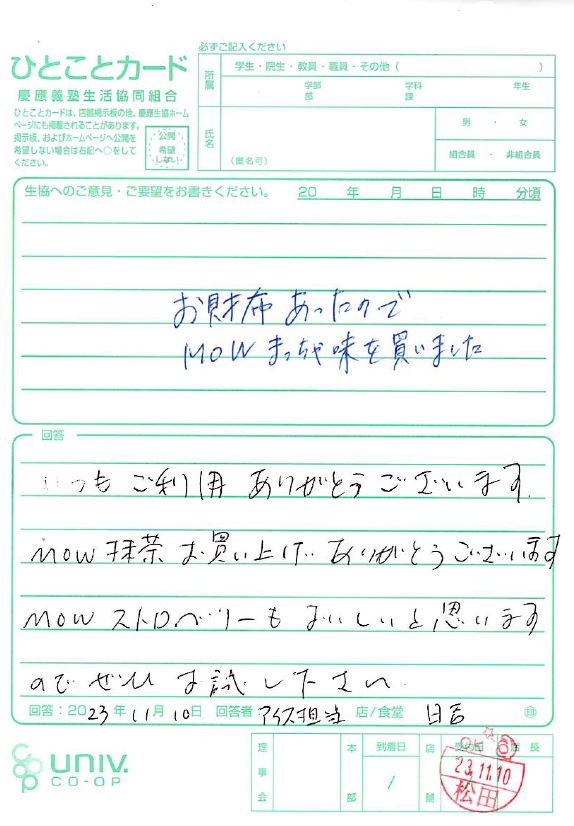 必ずご記入ください
ひとことカード
慶應義塾生活協同組合
ひとことカードは、店舗掲示板の他、慶應生協ホーム
ページにも掲載されることがあります。
掲示板、およびホームページへ公開を
希望しない場合は右記へ○をして
ください。
公開
希望
しない
所属
学生・院生・教員・職員・その他（ ）
学部 学科 年生
部 課
氏名
（匿名可）
男 ・ 女
組合員 ・ 非組合員
生協へのご意見・ご要望をお書きください。 20 年 月 日 時 分頃
お財布あったので
MOWまっちゃ味を買いました
回答
いつもご利用ありがとうございます。
MOW抹茶お買い上げ、ありがとうございます
MOWストロベリーもおいしいと思います
のでぜひお試し下さい
回答：2023年11月10日 回答者 アイス担当 店/食堂 日吉 ㊞
UNIV.
CO-OP
理事会
本部
到着日
/
店
店長
23.11.10
松田